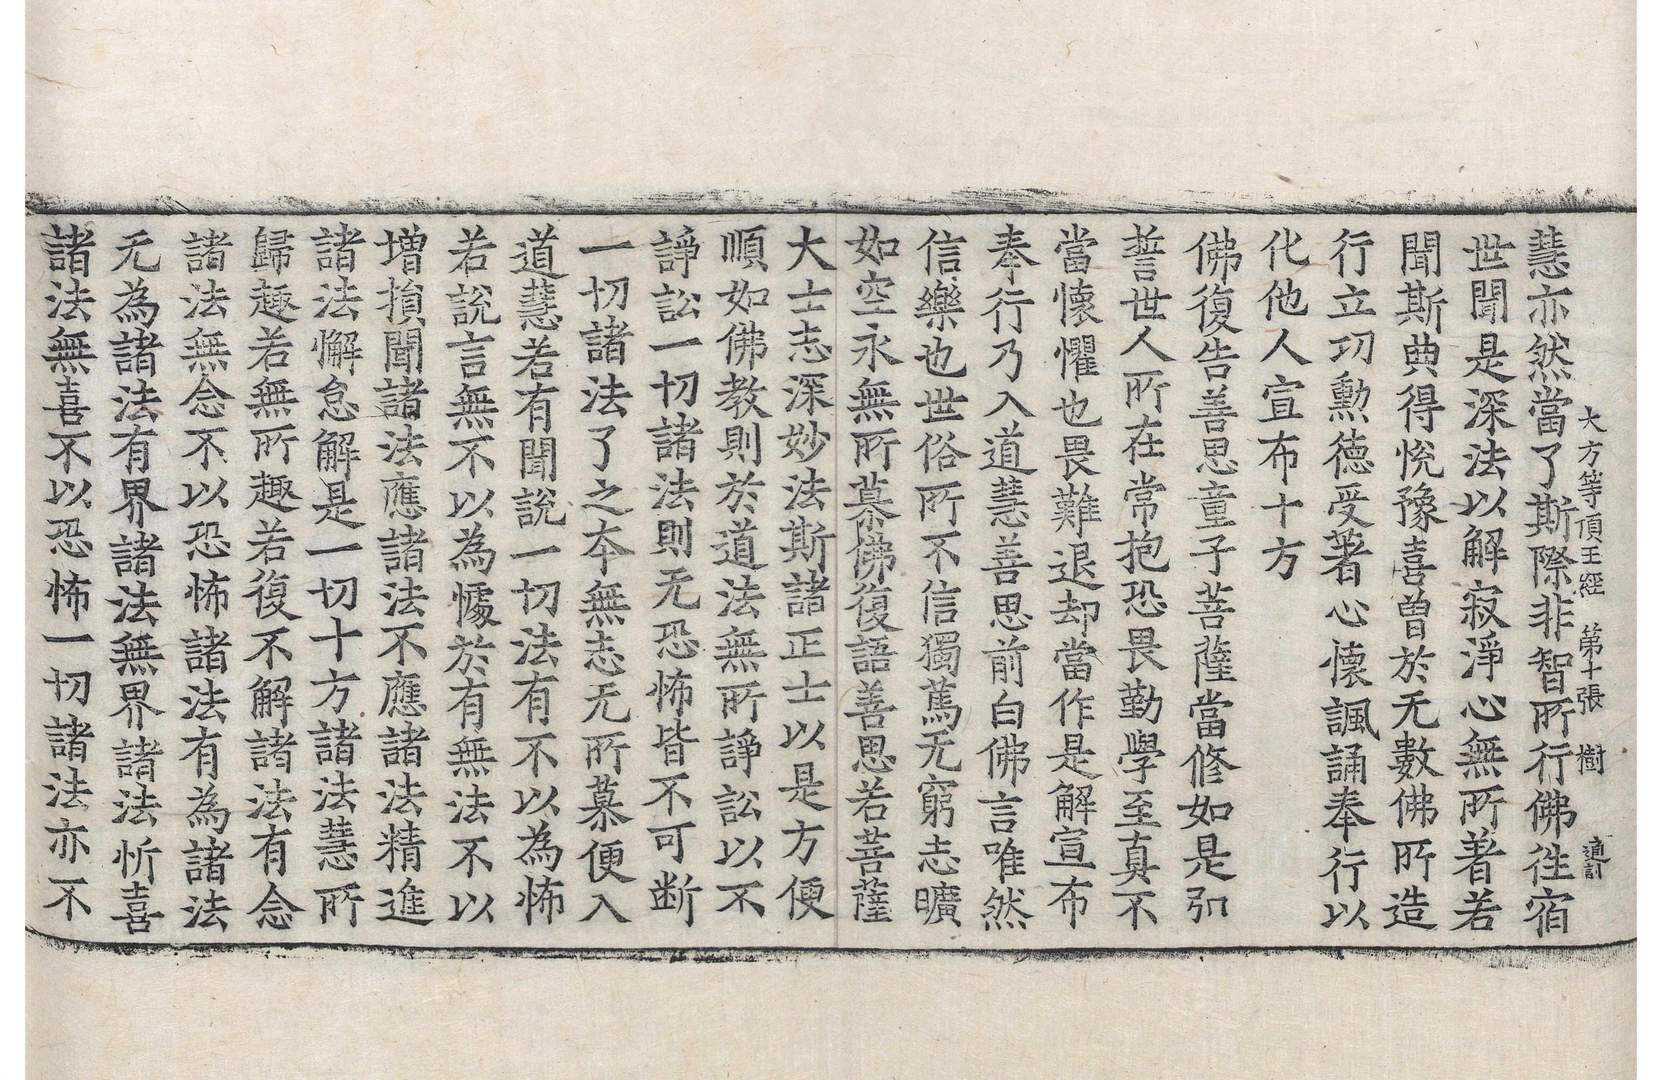 大方等頂王經 第十張 樹 道訁
慧亦然當了斯際非智所行佛往宿
世聞是深法以解寂淨心無所著若
聞斯典得悅豫喜曽於无數佛所造
行立功勳德受著心懷諷誦奉行以
化他人宣布十方
佛復告善思童子菩薩當修如是弘
誓世人所在常抱恐畏勤學至真不
當懷懼也畏難退却當作是解宣布
奉行乃入道慧善思前白佛言唯然
信樂也世俗所不信獨篤无窮志曠
如空永無所慕佛復語善思若菩薩
大士志深妙法斯諸正士以是方便
順如佛教則於道法無所諍訟以不
諍訟一切諸法則无恐怖皆不可断
一切諸法了之夲無志无所慕便入
道慧若有聞說一切法有不以為怖
若說言無不以為懅於有無法不以
增損聞諸法應諸法不應諸法精進
諸法懈怠解是一切十方諸法慧所
歸趣若無所趣若復不解諸法有念
諸法無念不以恐怖諸法有為諸法
无為諸法有界諸法無界諸法忻喜
諸法無喜不以恐怖一切諸法亦不